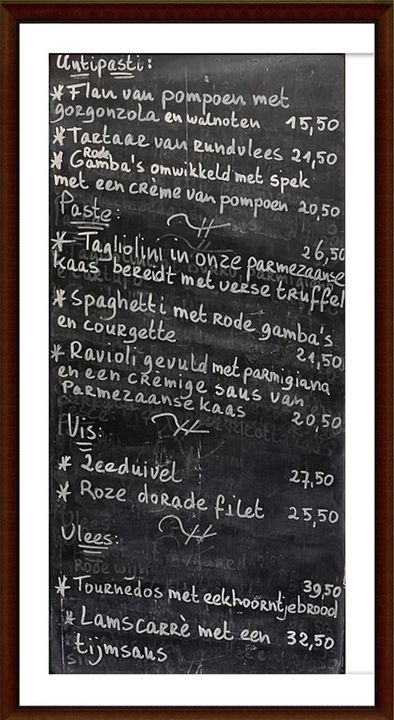 Antipasti:
* Flan van pompoen met
gorgonzola en walnoten 15,50
* Tartaar van rundvlees 21,50
* Rode Gamba's omwikkeld met spek
met een crème van pompoen 20,50
Paste:
* Tagliolini in onze parmezaanse 26,50
kaas bereidt met verse truffel
* Spaghetti met rode gamba's
en courgette 21,50
* Ravioli gevuld met parmigiana
en een crèmige saus van
parmezaanse kaas 20,50
Vis:
* Zeeduivel 27,50
* Roze dorade filet 25,50
Vlees:
* Tournedos met eekhoorntjebrood 39,50
* Lamscarrè met een 32,50
tijmsaus